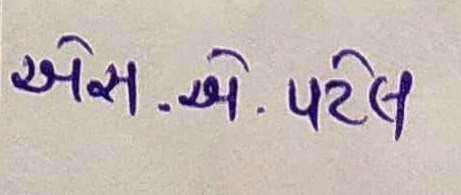 એસ.એ. પટેલ